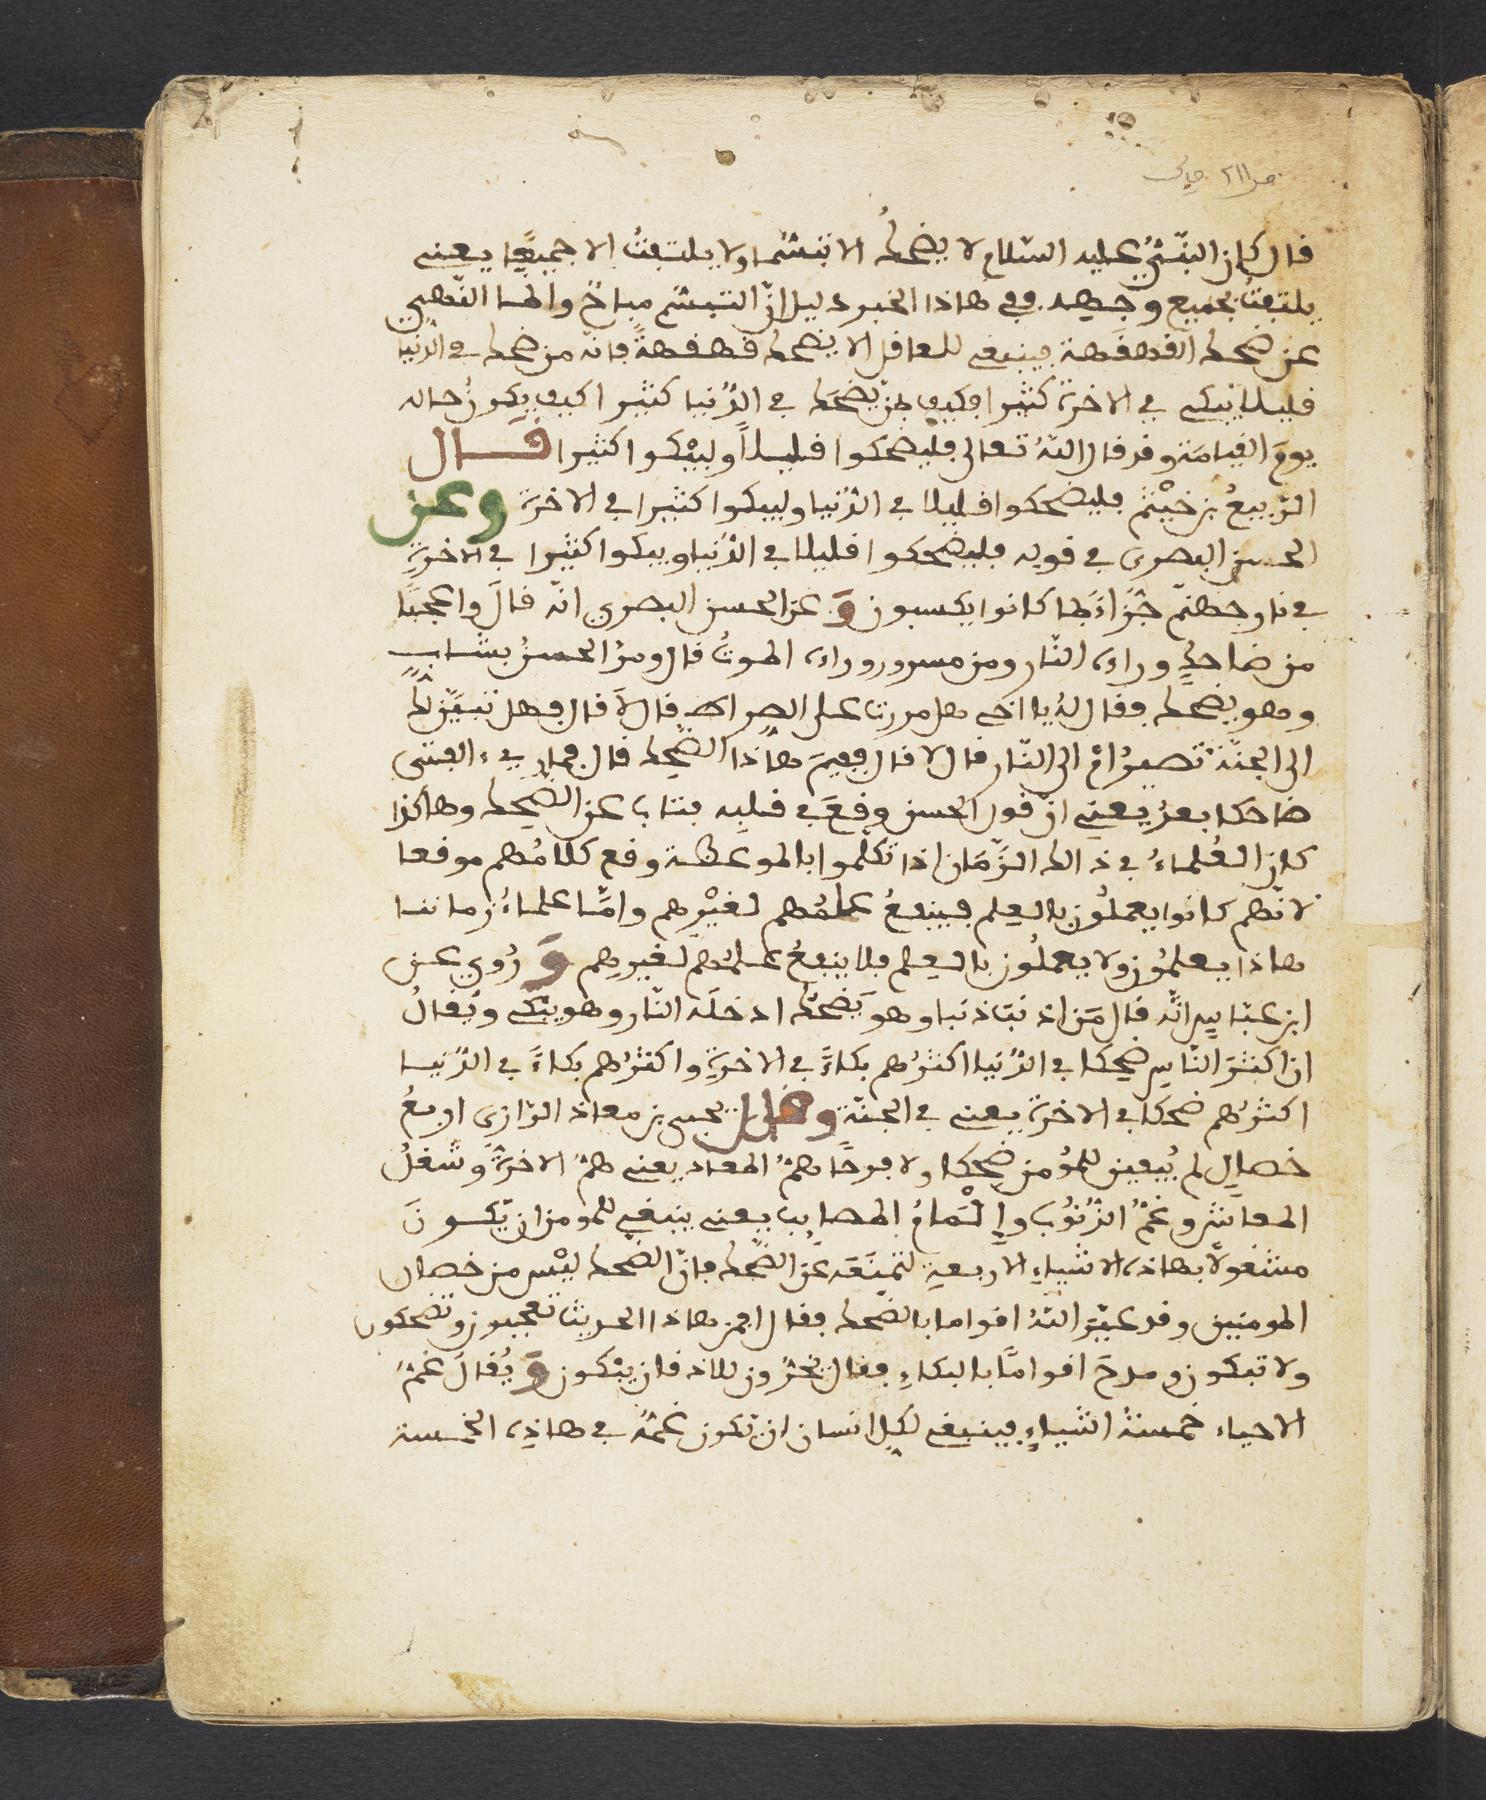 قال كان النبيُّ عليه السّلام لا يضحكُ الا تبسّما ولا يلتفتُ الا جميعًا يعنى
يلتفتُ بجميع وجهه ففى هاذا الخبر دليل انّ التبسّم مباحٌ وانما النّهى
عن ضحك القهقهة فينبغى للعاقل الا يضحك قهقهةً فانّه من ضحك في الدّنيا
قليلا يبكى في الاخرة كثيرا فكيف بمن يضحَك في الدُّنيا كثيرا كيف يكونُ حاله
يومَ القيامَة وقد قال اللهُ تعالى فليضحكوا قليلاً وليبْكوا كثيرا قال
الرّبيعُ بن خيْثم فليضحكوا قليلا في الدُّنيا وليبكوا كثيرا في الاخرة وعن
الحسن البصرى في قوله فليضحكوا قليلا في الدُّنيا ويبكوا كثيرا في الاخرةِ
في نار جهنّم جزَاءً بما كانوا يكسبون وَعن الحسن البصري انّه قالَ واعجبًا
من ضاحكٍ وراءه النّار ومن مسرور وراءه الموتُ قال ومرّ الحسنُ بشابٍّ
وهو يضحك فقال لهُ يا اخى هل مررت على الصراط قال لاَ قال فهل تبيّن لكَ
الى الجنّة تصيرُ امْ الى النّار قال لا قال ففيمَ هاذا الضّحِك قال فما رىء الفتى
ضاحكا بعدُ يعني انّ قول الحسن وقعَ في قلبِه فتاب عن الضّحِك وهاكذا
كان العُلماءُ في ذالك الزَّمَان اذا تكلّموا بالموعظة وقع كلامُهم موقعا
لانّهم كانوا يعملُون بالعِلم فينفعُ علمُهم لغيْرِهم وامَّا علماءُ زماننا
هاذا يعلمُون ولا يعملُون بالعِلم فلا ينفعُ علمُهم لغيرِهم وَرُوي عن
ابن عبّاسٍ انّه قال مَن اذنبَ ذنبا وهوَ يَضحَكُ ادخلَه النّار وهو يبْكى ويُقالُ
ان اكثرَ النّاسِ ضحكا في الدُّنيا اكثرُهم بكاءً في الاخرةِ واكثرُهم بكاءً في الدّنيا
اكثرُهم ضحكا في الاخرة يعنى في الجنّة وقال يحيى بن معاذ الرّازى اربعُ
خصالٍ لم يُبقين للمُومن ضحكا ولا فرحًا همُّ المعاد يعنى همُّ الاخرةِ وشغلُ
المعاش وغمُّ الذُّنوُب وإِلْمامُ المصايب يعنى ينبغى للمومن ان يّكونَ
مشغولاً بهاذه الاشياءِ الاربعةِ لتمنَعَه عن الضّحك فانّ الضّحك ليْس من خصال
المومنين وقد عيّرَ اللهُ اقواما بالضّحك فقال افمن هاذا الحديث تعجبون وتضحكون
ولا تبكون ومدحَ اقوامًا بالبكاءِ فقال يخرّون للاذقان يبْكون وَيُقالَ غمُّ
الاحياء خمسةُ اشياءٍ فينبغى لكلِ انسان ان يّكون غمُّه في هاذِه الخمسة